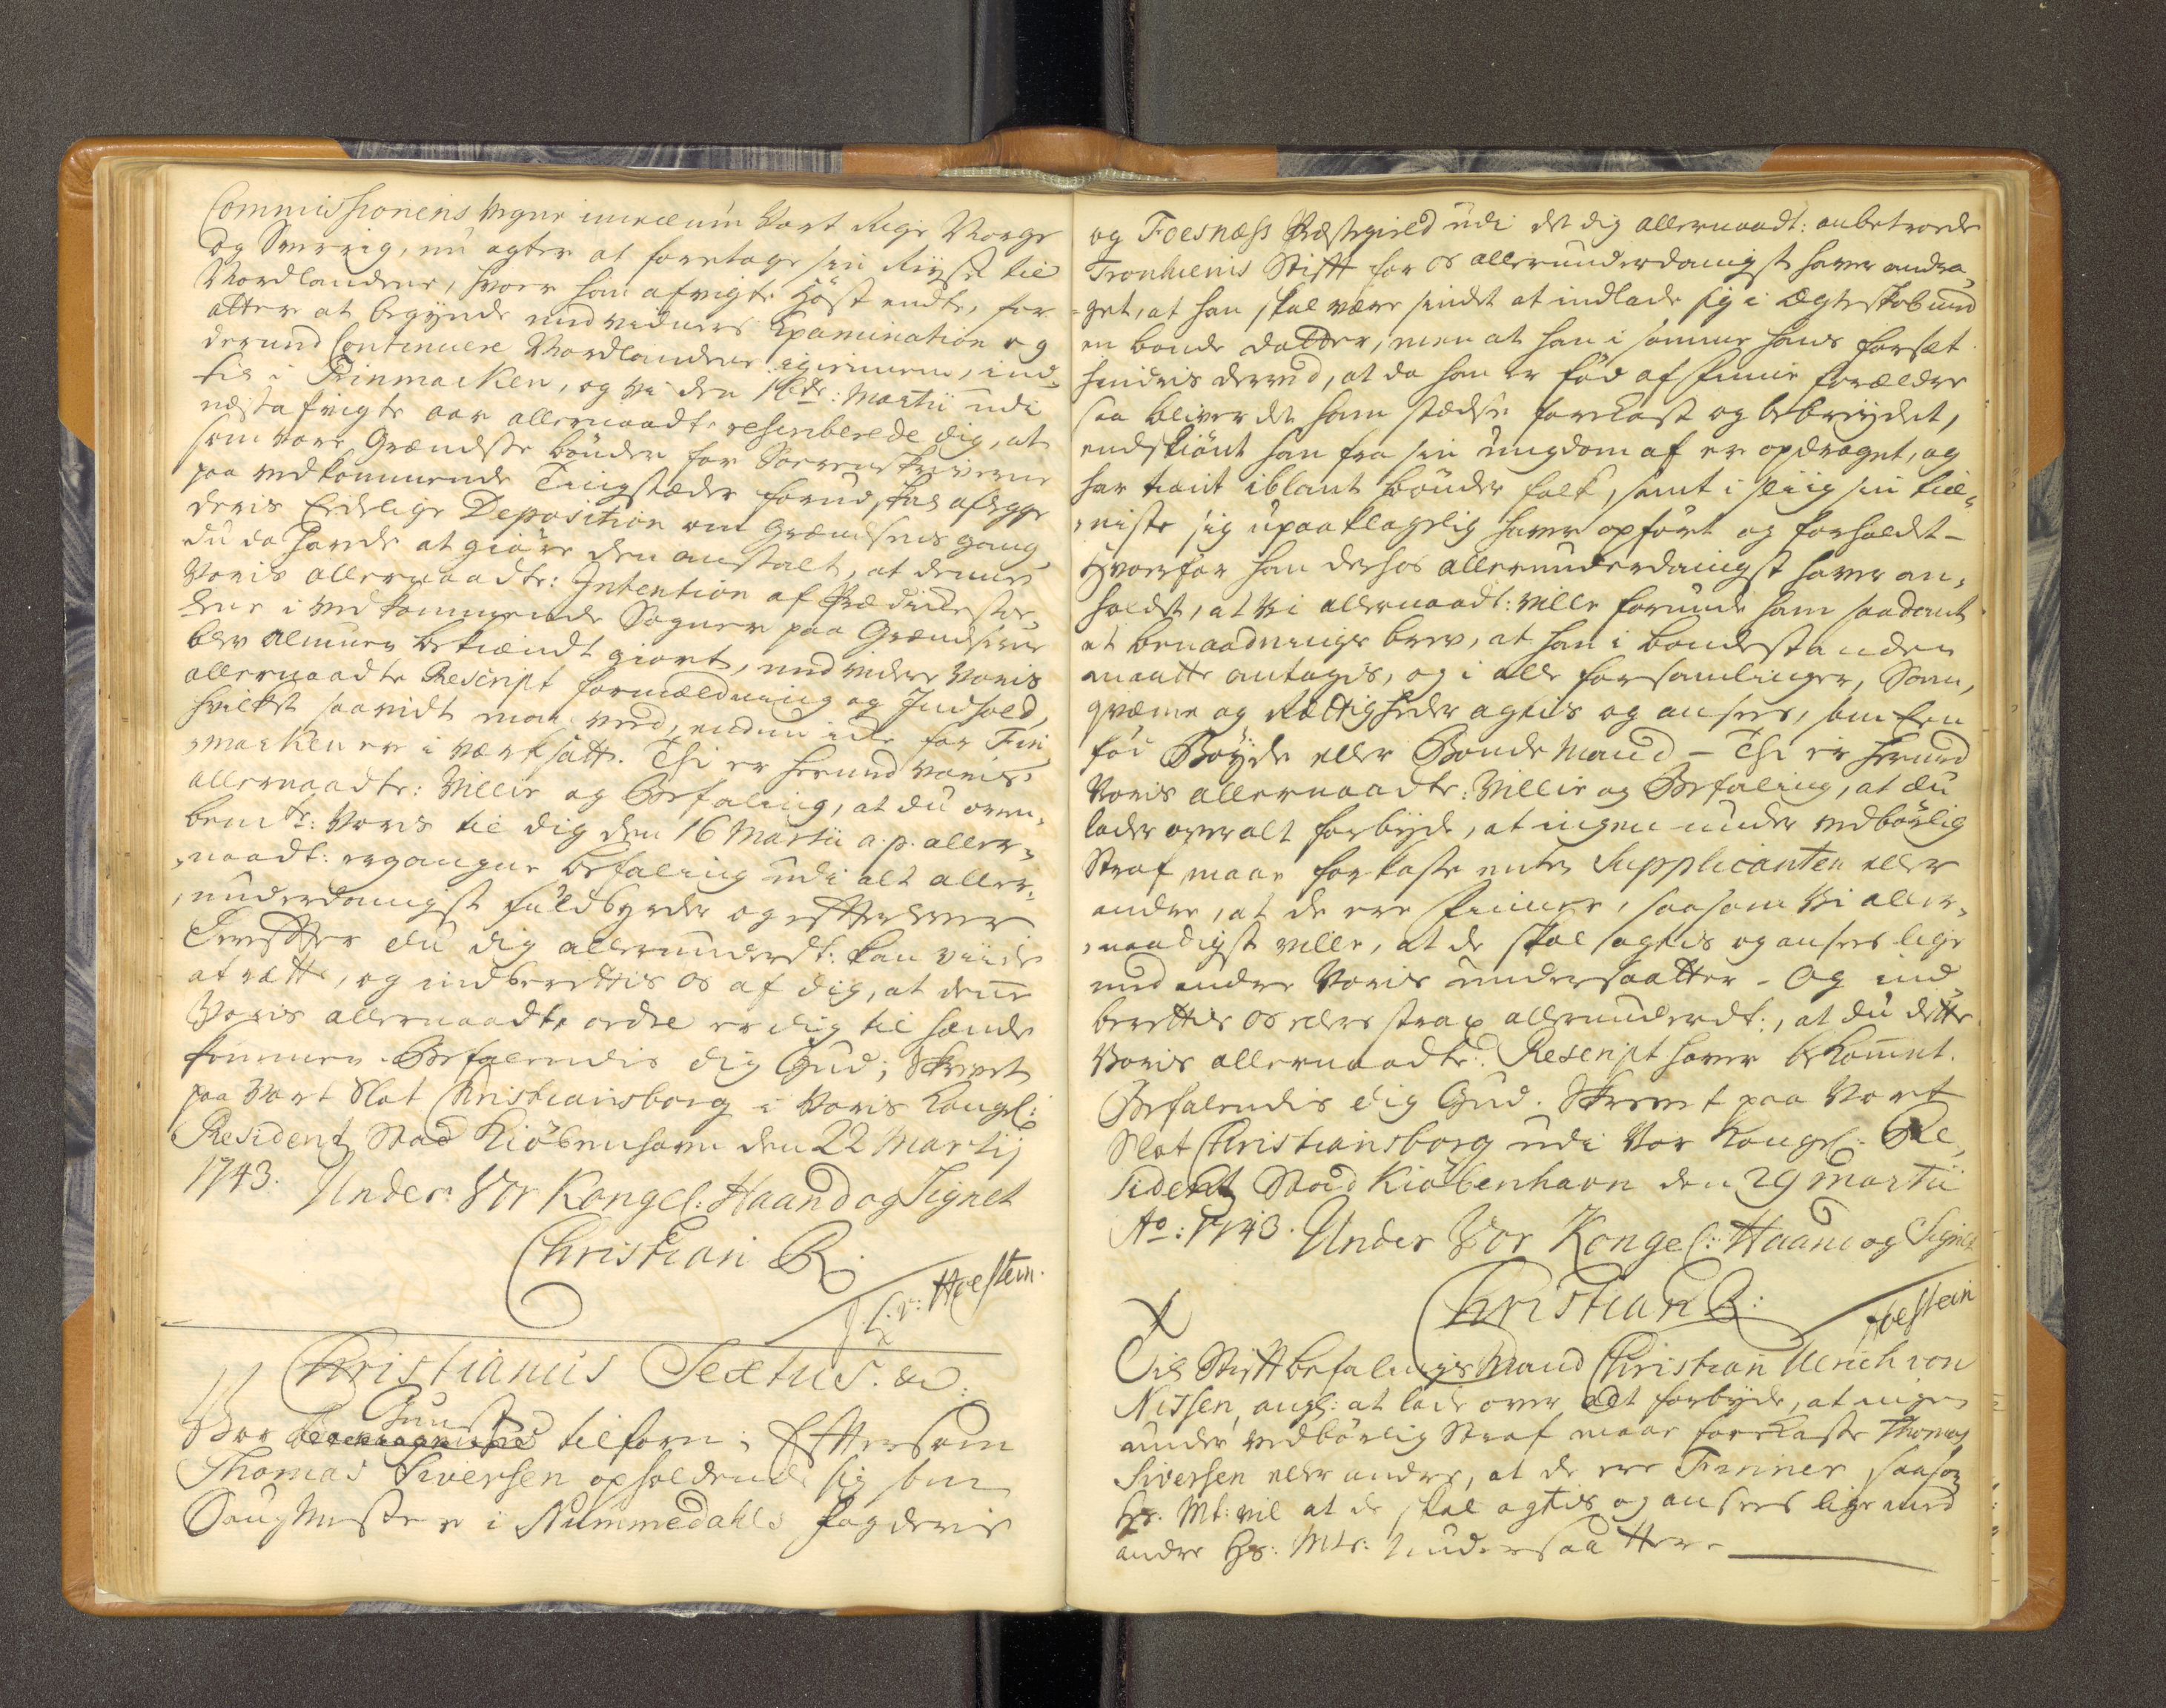 Commissionens vegne imellum Vort Rige Norge
og Sverrig, nu agter at foretage sin Reyse til
Nordlandene, hvor han afvigte Høst endte, for
atter at begynde med vidners Examination og
dermed Continuere Nordlandene igiennem, ind
til i Finmarken, og Vi den 16de: Martii udi
nästafvigte aar allernaadte rescriberede dig, at
som vore Grændse bønder for Sorenskriverne
paa vedkommende Tingstæder forud skal aflegge
deris Eedelige Deposition om Grændsens gang
du da havde at giøre den anstalt, at denne
Voris allernaadte: Intention af Prædikesto-
lene i vedkommende Sogner paa Grændserne
blev almuen bekiendt giort, med videre Voris
allernaadte Rescript formeldning og Indhold,
hvilket saavidt man veed, endnu ikke for Fin
marken er i værk satt. Thi er hermed Voris
allernaadte: Villie og Befaling, at du oven-
bemte: Voris til dig den 16 Martii a: p. aller-
naadt: ergangne befaling udi alt aller-
underdanigst fuldbyrder og efterlever
Derefter du dig allerunderdt: kan viide
at rætte, og indberettis os af dig, at denne
Voris allernaadte ordre er dig til hænde
kommen. Befalendis dig Gud; Skrevet
paa Vort Slot Christiansborg i Voris Kongel:
Residentz Stad Kiøbenhavn den 22 Martij
1743. Under Vor Kongel: Haand og Signet
Christian R.
J. L. v: Holstein.
Christianus Sextus. &c:
Gunst
Vor tilforn; Eftersom
Thomas Siversen opholdende sig som
Saugmester i Nummedahls fogderie
og Foesnæss Præstegield udi det dig allernaadt: anbetroede
Tronhiems Stift for os allerunderdanigst haver andra-
get, at han skal være sindet at indlade sig i Ægteskab med
en bonde datter, men at han i samme hans forsæt
hindris derved, at da han er fød af Finne forældre
saa bliver det ham stædse forekast og bebreydet,
endskiønt han fra sin ungdom af er opdraget, og
har tient iblant bønder folk, samt i sliig sin tie-
niste sig upaaklagelig haver opført og forholdt -
Hvorfor han derhos allerunderdanigst haver an-
holdt, at Vi allernaadt: ville forunde ham saadant
et benaadnings brev, at han i bondestanden
maatte antages, og i alle forsamlinger, Sam-
qvæme og Rættigheder agtis og ansees, som een
fød Bøyde eller Bonde Mand - Thi er hermed
Voris allernaadte: Villie og Befaling, at du
lader overalt forbyde, at ingen under vedbørlig
Straf maae forkaste enten Supplicanten eller
andre, at de ere Finner, saasom Vi aller-
naadigst ville, at de skal agtis og ansees lige
med andre Voris undersaatter. Og ind-
berettis os ellers strax allerunderdt:, at du dette
Voris allernaadte: Rescript haver bekommet.
Befalendis dig Gud. Skrevet paa Vort
Slot Christiansborg udi Vor Kongel: Re-
sidentz Stad Kiøbenhavn den 29 Martii
Ao: 1743. Under Vor Kongel: Haand og Signet
Christian R:
Holstein
Til Stiftbefalingsmand Christian Ulrich von
Nissen, ang: at lade over alt forbyde, at ingen
under vedbørlig Straf maae forekaste Thomas
Siversen eller andre, at de ere Finner, saasom
Hs. Mt: vil at de skal agtis og ansees lige med
andre Hs: Mts: Undersaattere.